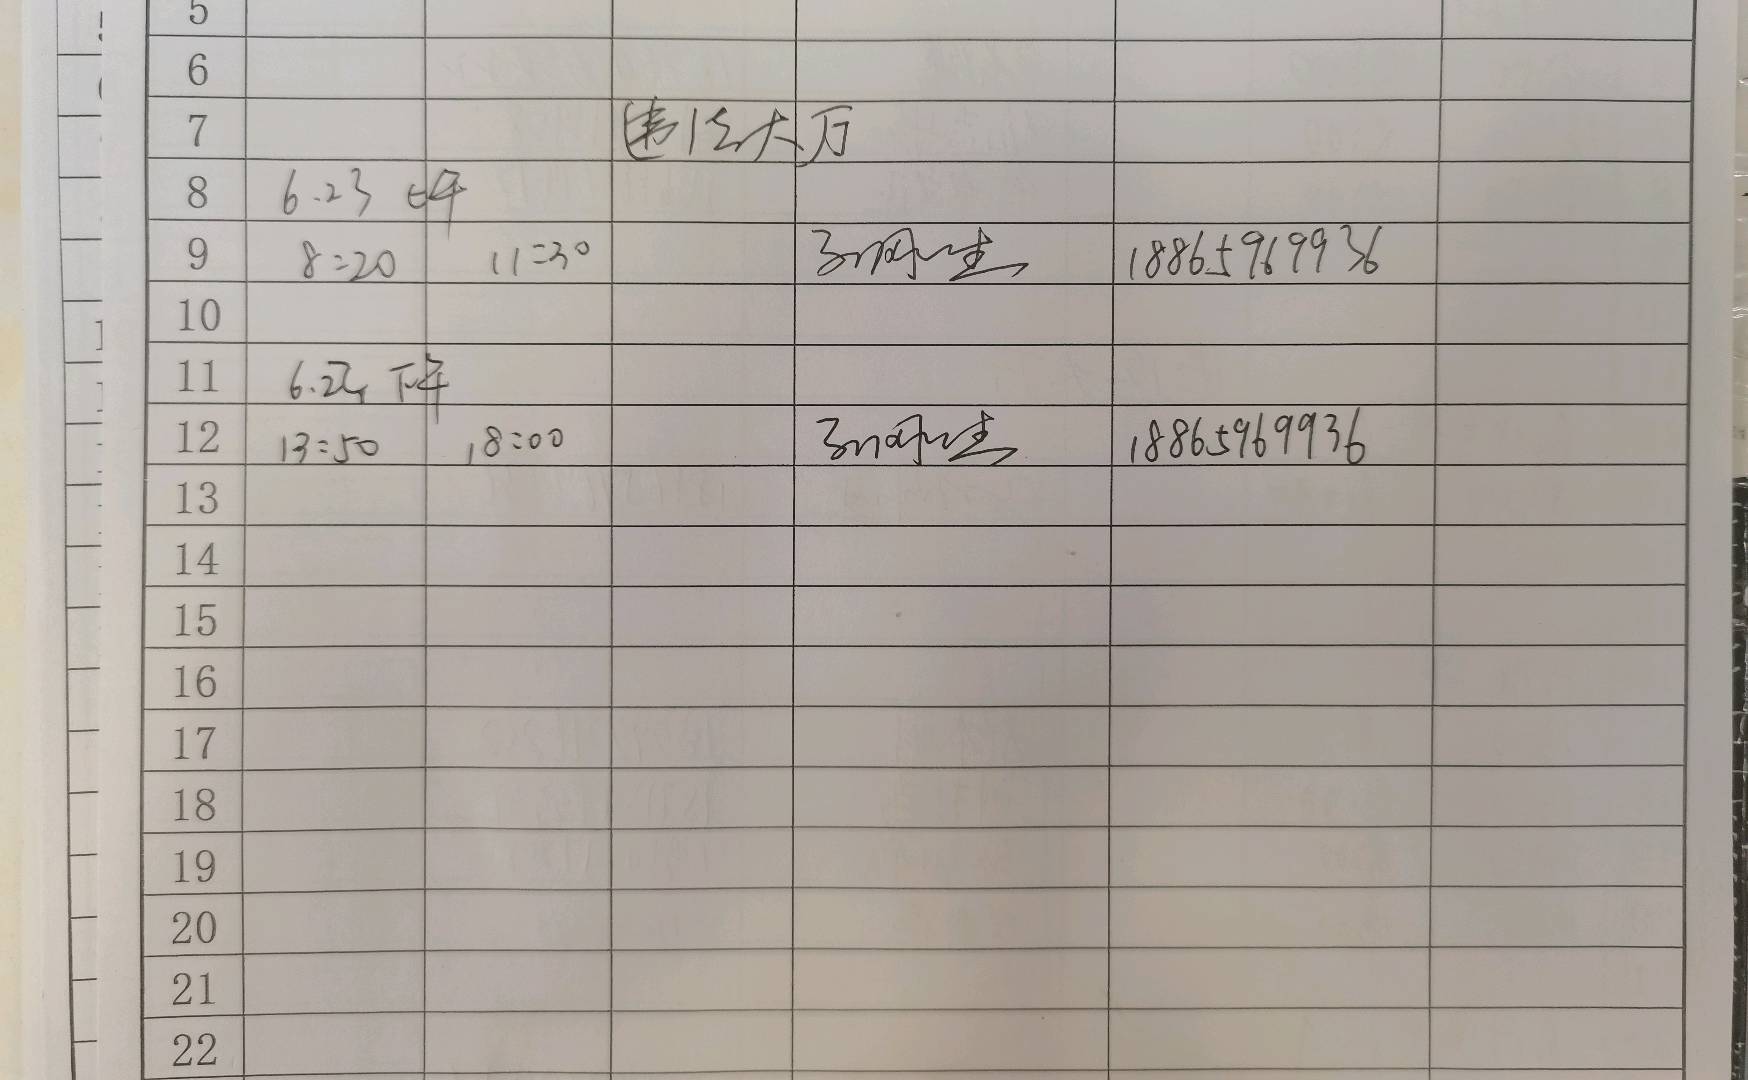 5
6
7 违法大厅
8 6.23 上午
9 8:20 11:30 18865969936
10
11 6.23 下午
12 13:50 18:00 18865969936
13
14
15
16
17
18
19
20
21
22